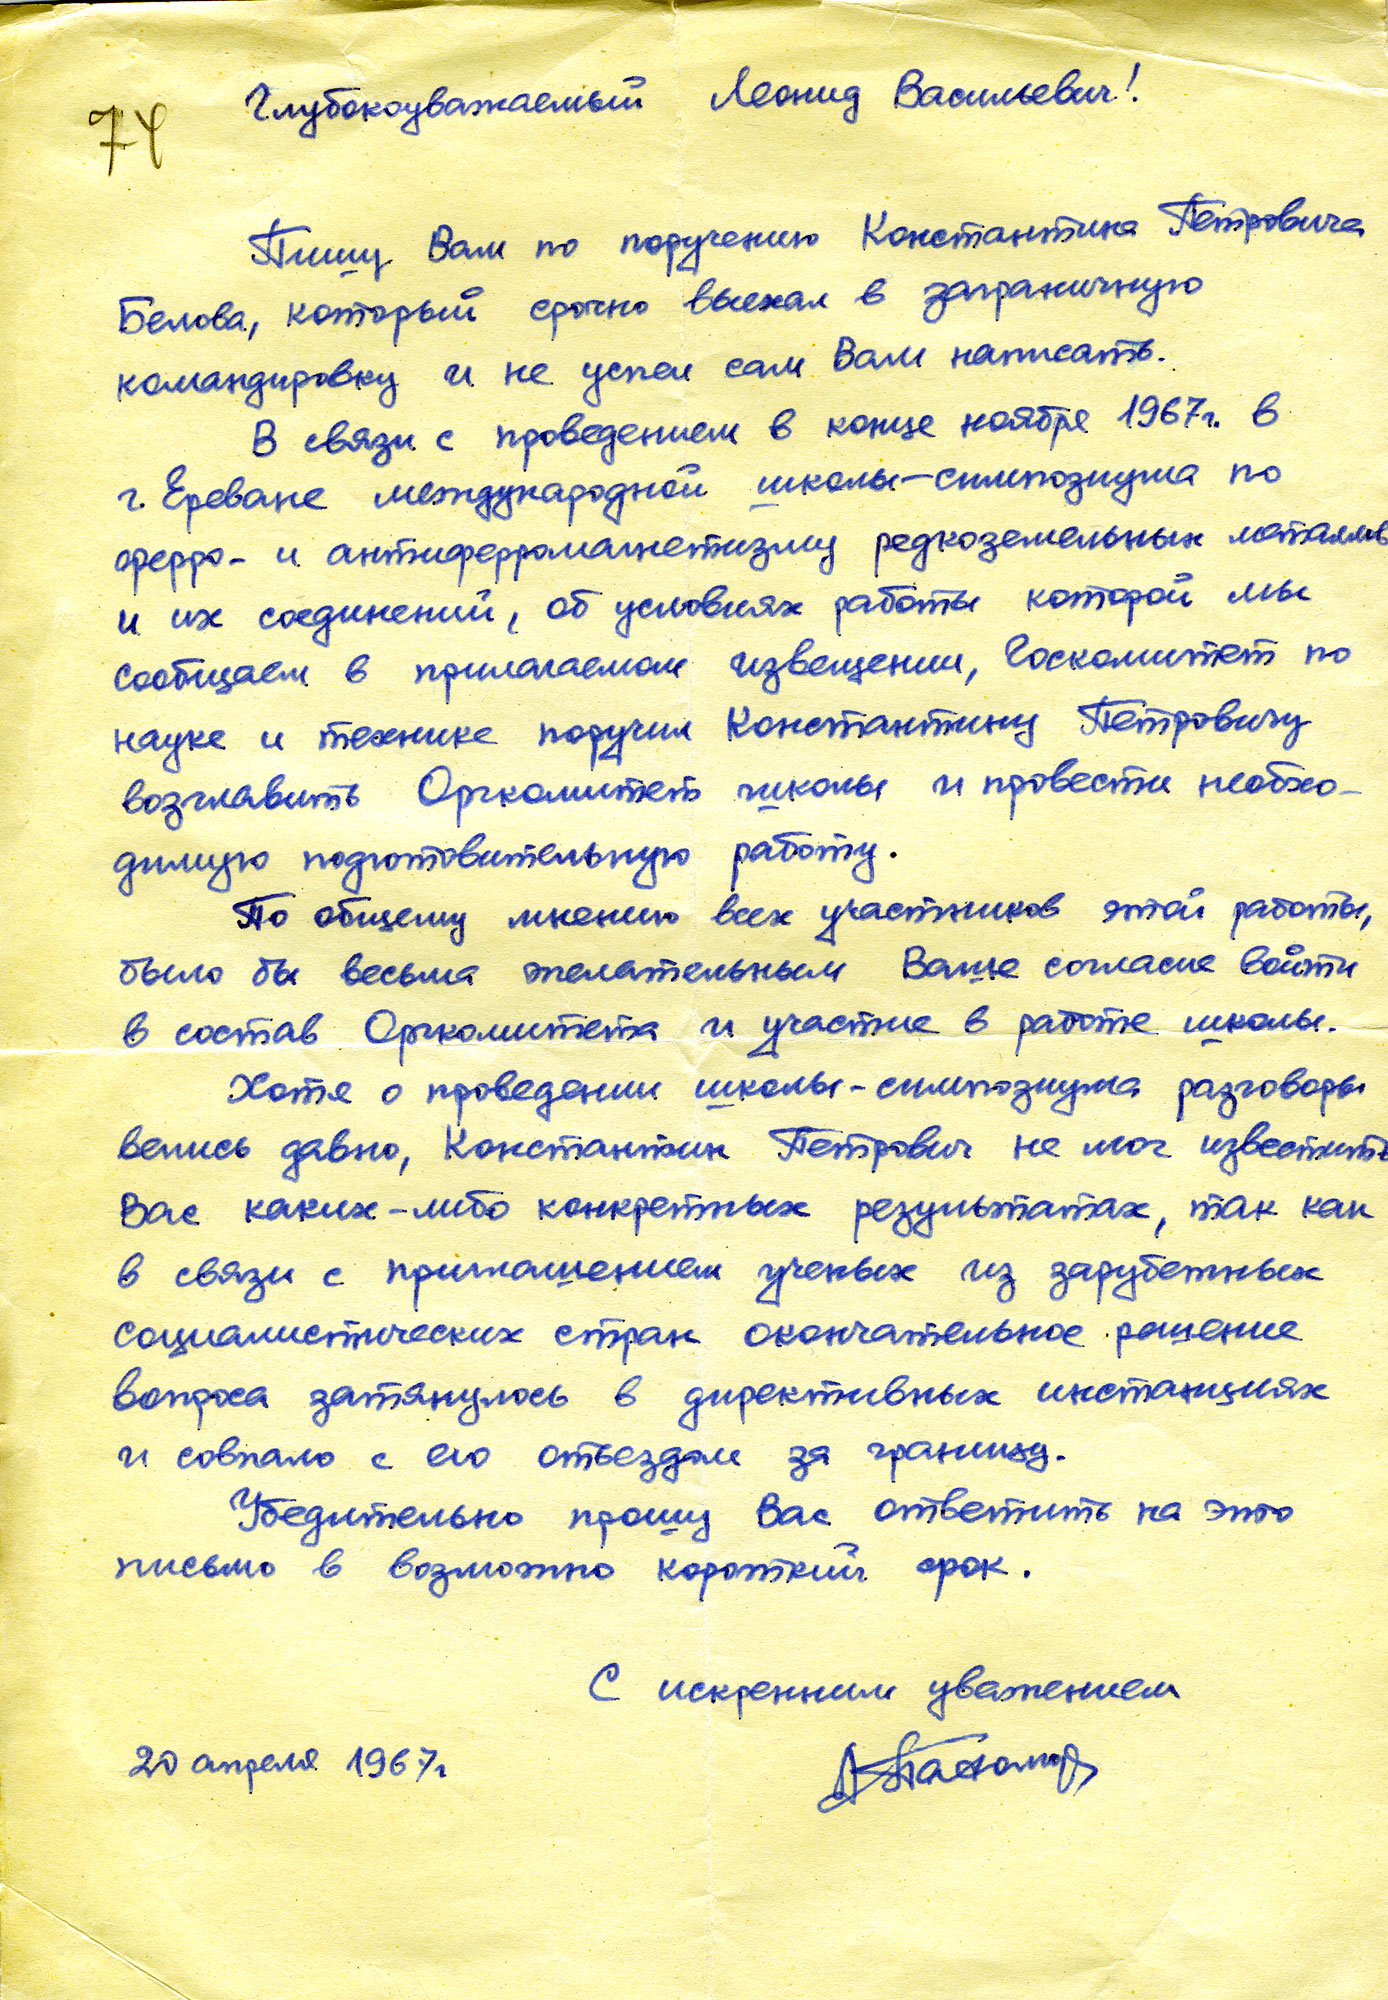 Глубокоуважаемый Леонид Васильевич!
74
Пишу Вам по поручению Константина Петровича
Белова, который срочно выехал в заграничную
командировку и не успел сам Вам написать.
В связи с проведением в конце ноября 1967г. в
г. Ереване международной школы-симпозиума по
ферро- и антиферромагнетизму редкоземельных металлов
и их соединений, об условиях работы которой мы
сообщаем в прилагаемом извещении, Госкомитет по
науке и технике поручил Константину Петровичу
возглавить Оргкомитет школы и провести необхо-
димую подготовительную работу.
По общему мнению всех участников этой работы,
было бы весьма желательным Ваше согласие войти
в состав Оргкомитета и участие в работе школы.
Хотя о проведении школы-симпозиума разговоры
велись давно, Константин Петрович не мог известить
Вас каких-либо конкретных результатах, так как
в связи с приглашением ученых из зарубежных
социалистических стран окончательное решение
вопроса затянулось в директивных инстанциях
и совпало с его отъездом за границу.
Убедительно прошу Вас ответить на это
письмо в возможно короткий срок.
С искренним уважением
20 апреля 1967г.